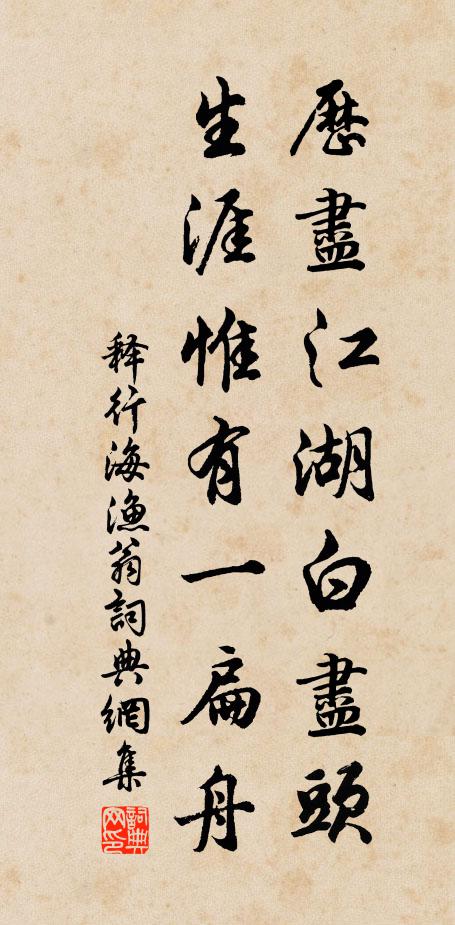 歷盡江湖白盡頭
生涯惟有一扁舟
释行海漁翁詞典網集
詞典网印